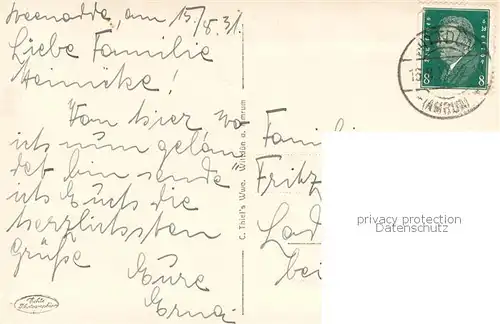 am 15/8.31.
Liebe Familie
Heinicke!
Von hier wo
ich nun gelan
det bin sende
ich Euch die
herzlichsten
Grüße
Eure
Erna
C. Thiel's Wwe. Wittdün a. Amrum
Familie
Fritz
Lad
bei
privacy protection
Datenschutz
Deutsches Reich
8 8
(AMRUM)
Echte Photographie